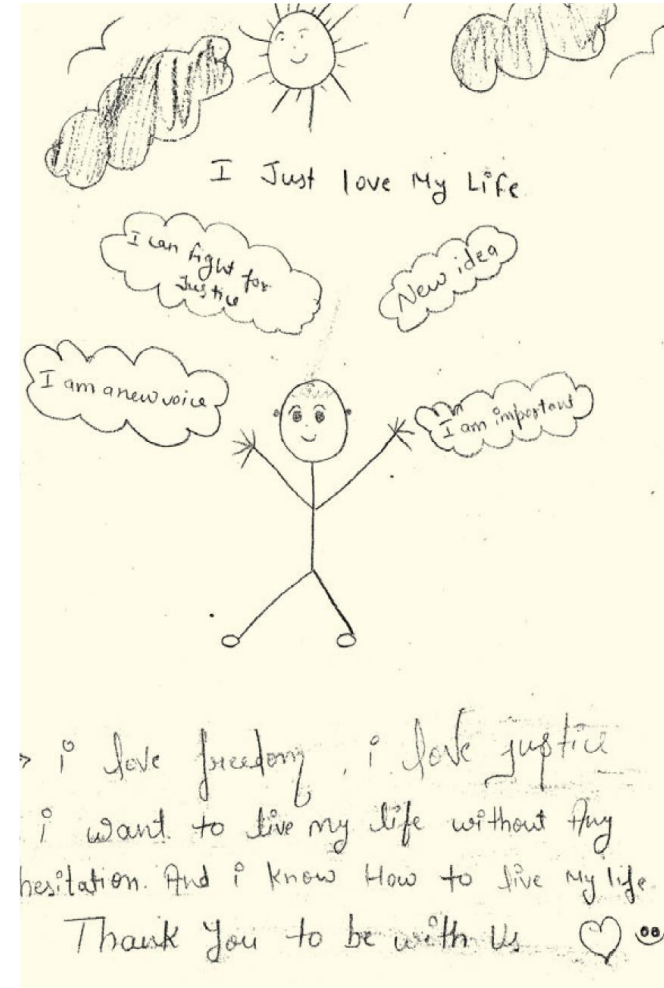 I Just love My Life
I can fight for
Justice
New idea
I am a new voice
I am important
i love freedom, i love justice
i want to live my life without Any
hesitation. And i know How to live My life
Thank You to be with Us